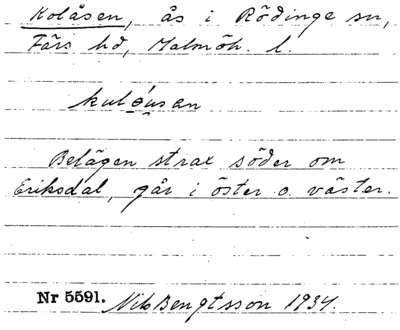 Kolåsen, ås i Rödinge sn,
Färs hd, Malmöh. l.
Belägen strax söder om
Eriksdal, går i öster o. väster.
Nr 5591. Nils Bengtsson 1934.